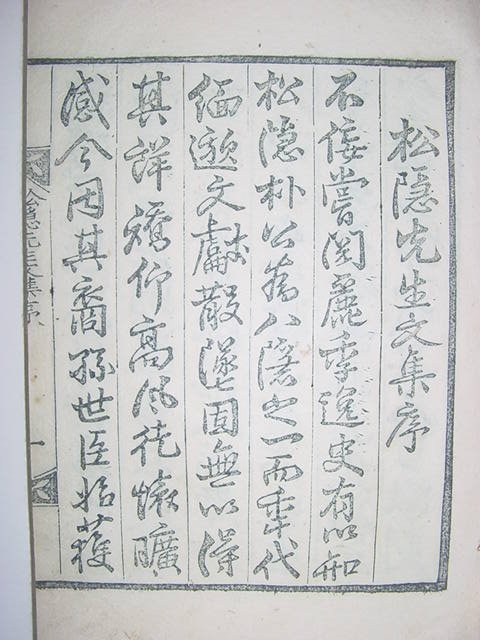 松隱先生文集序
不侫嘗閱麗季逸史有以知
松隱朴公爲八隱之一而年代
緬邈文獻散墜固無以得
其詳矯仰高風徒懷曠
感今因其裔孫世臣始獲
松隱先生文集序
一